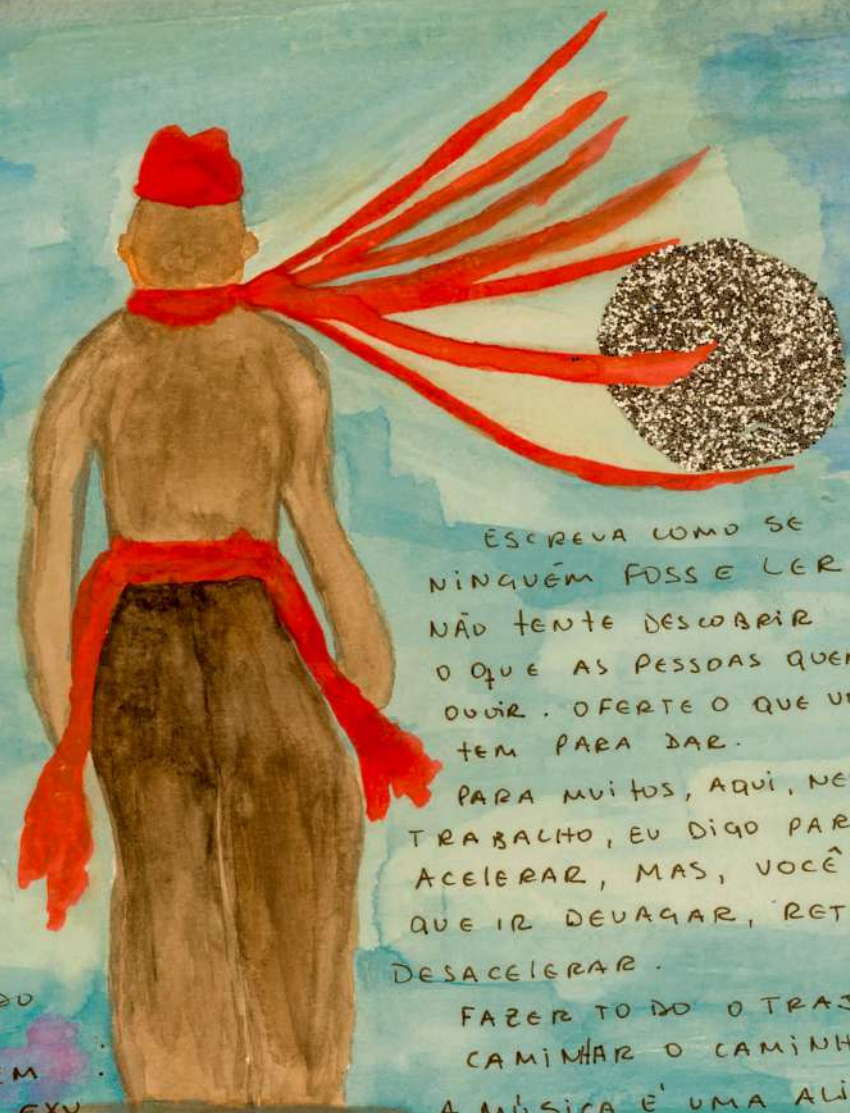 ESCREVA COMO SE
NINGUÉM FOSSE LER
NÃO TENTE DESCOBRIR
O QUE AS PESSOAS QUER
OUVIR. OFERTE O QUE
TEM PARA DAR.
PARA MUITOS, AQUI, NE
TRABALHO, EU DIGO PAR
ACELERAR, MAS, VOCÊ
QUE IR DEVAGAR, RET
DESACELERAR.
FAZER TODO O TRAJ
CAMINHAR O CAMINH
A MÚSICA É UMA ALI
DO
EM
EXU